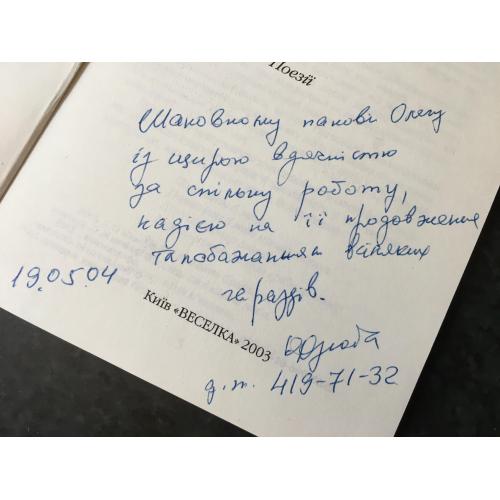 Поезії
Шановному панові Олегу
із щирою вдячністю
за спільну роботу,
надією на її продовження
та побажанням всіляких
гараздів.
19.05.04
Київ «ВЕСЕЛКА» 2003
д.т. 419-71-32